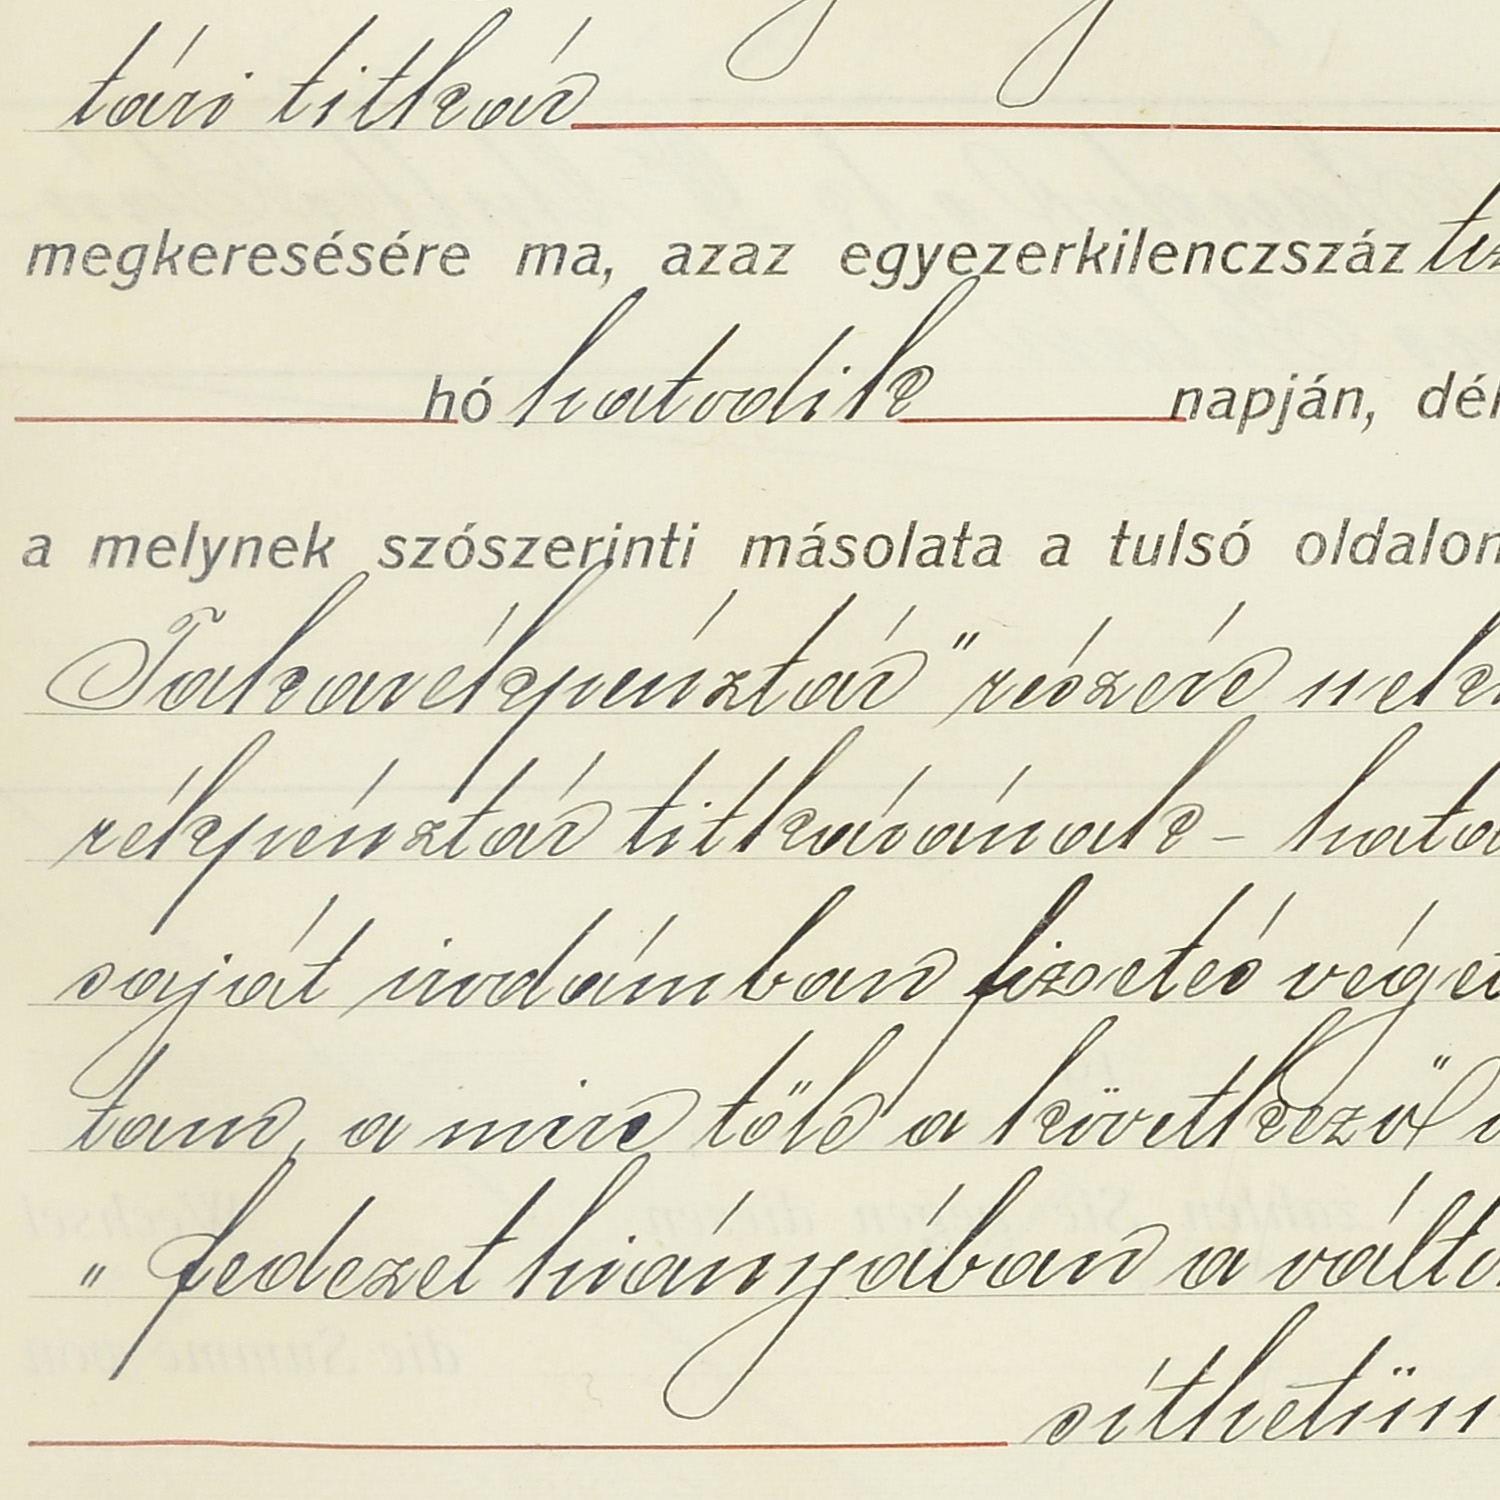 tári titkár
megkeresésére ma, azaz egyezerkilenczszáz
hó hatodik napján, dél
a melynek szószerinti másolata a tulsó oldalon
Takarékpénztár" részére
rékpénztár titkárának -
saját irodámban fizetés véget
tam, a mire tőle a következő
" fedezet hiányában a vált
síthetün